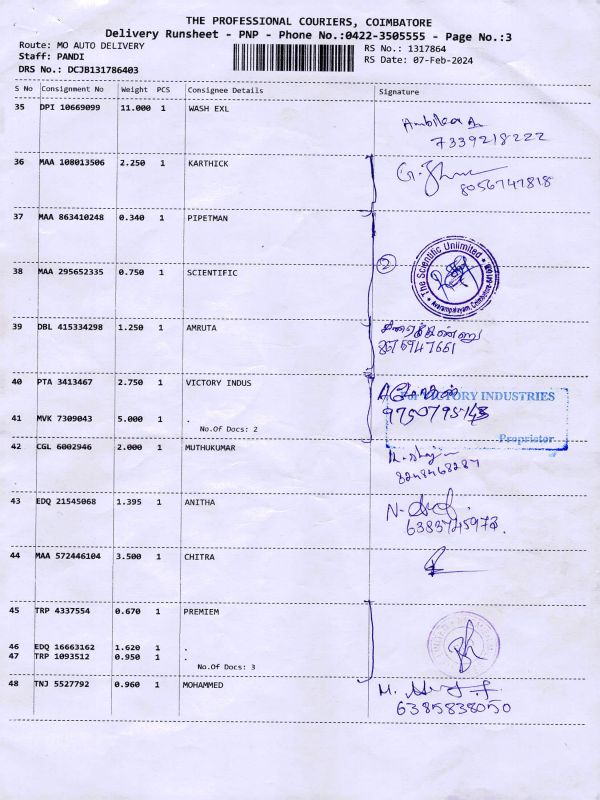 THE PROFESSIONAL COURIERS, COIMBATORE
Delivery Runsheet - PNP - Phone No.:0422-3505555 - Page No.:3
Route: MO AUTO DELIVERY
RS No.: 1317864
Staff: PANDI
RS Date: 07-Feb-2024
DRS No.: DCJB131786403
S No Consignment No Weight PCS Consignee Details Signature
35 DPI 10669099 11.000 1 WASH EXL
7339218222
36 MAA 108013506 2.250 1 KARTHICK
8056747818
37 MAA 863410248 0.340 1 PIPETMAN
38 MAA 295652335 0.750 1 SCIENTIFIC
2
The Scientific Unlimited
39 DBL 415334298 1.250 1 AMRUTA
40 PTA 3413467 2.750 1 VICTORY INDUS
For VICTORY INDUSTRIES
41 MVK 7309043 5.000 1 .
No.Of Docs: 2
Proprietor
42 CGL 6002946 2.000 1 MUTHUKUMAR
8248468287
43 EDQ 21545068 1.395 1 ANITHA
44 MAA 572446104 3.500 1 CHITRA
45 TRP 4337554 0.670 1 PREMIEM
46 EDQ 16663162 1.620 1 .
47 TRP 1093512 0.950 1 .
No.Of Docs: 3
48 TNJ 5527792 0.960 1 MOHAMMED
6385838050